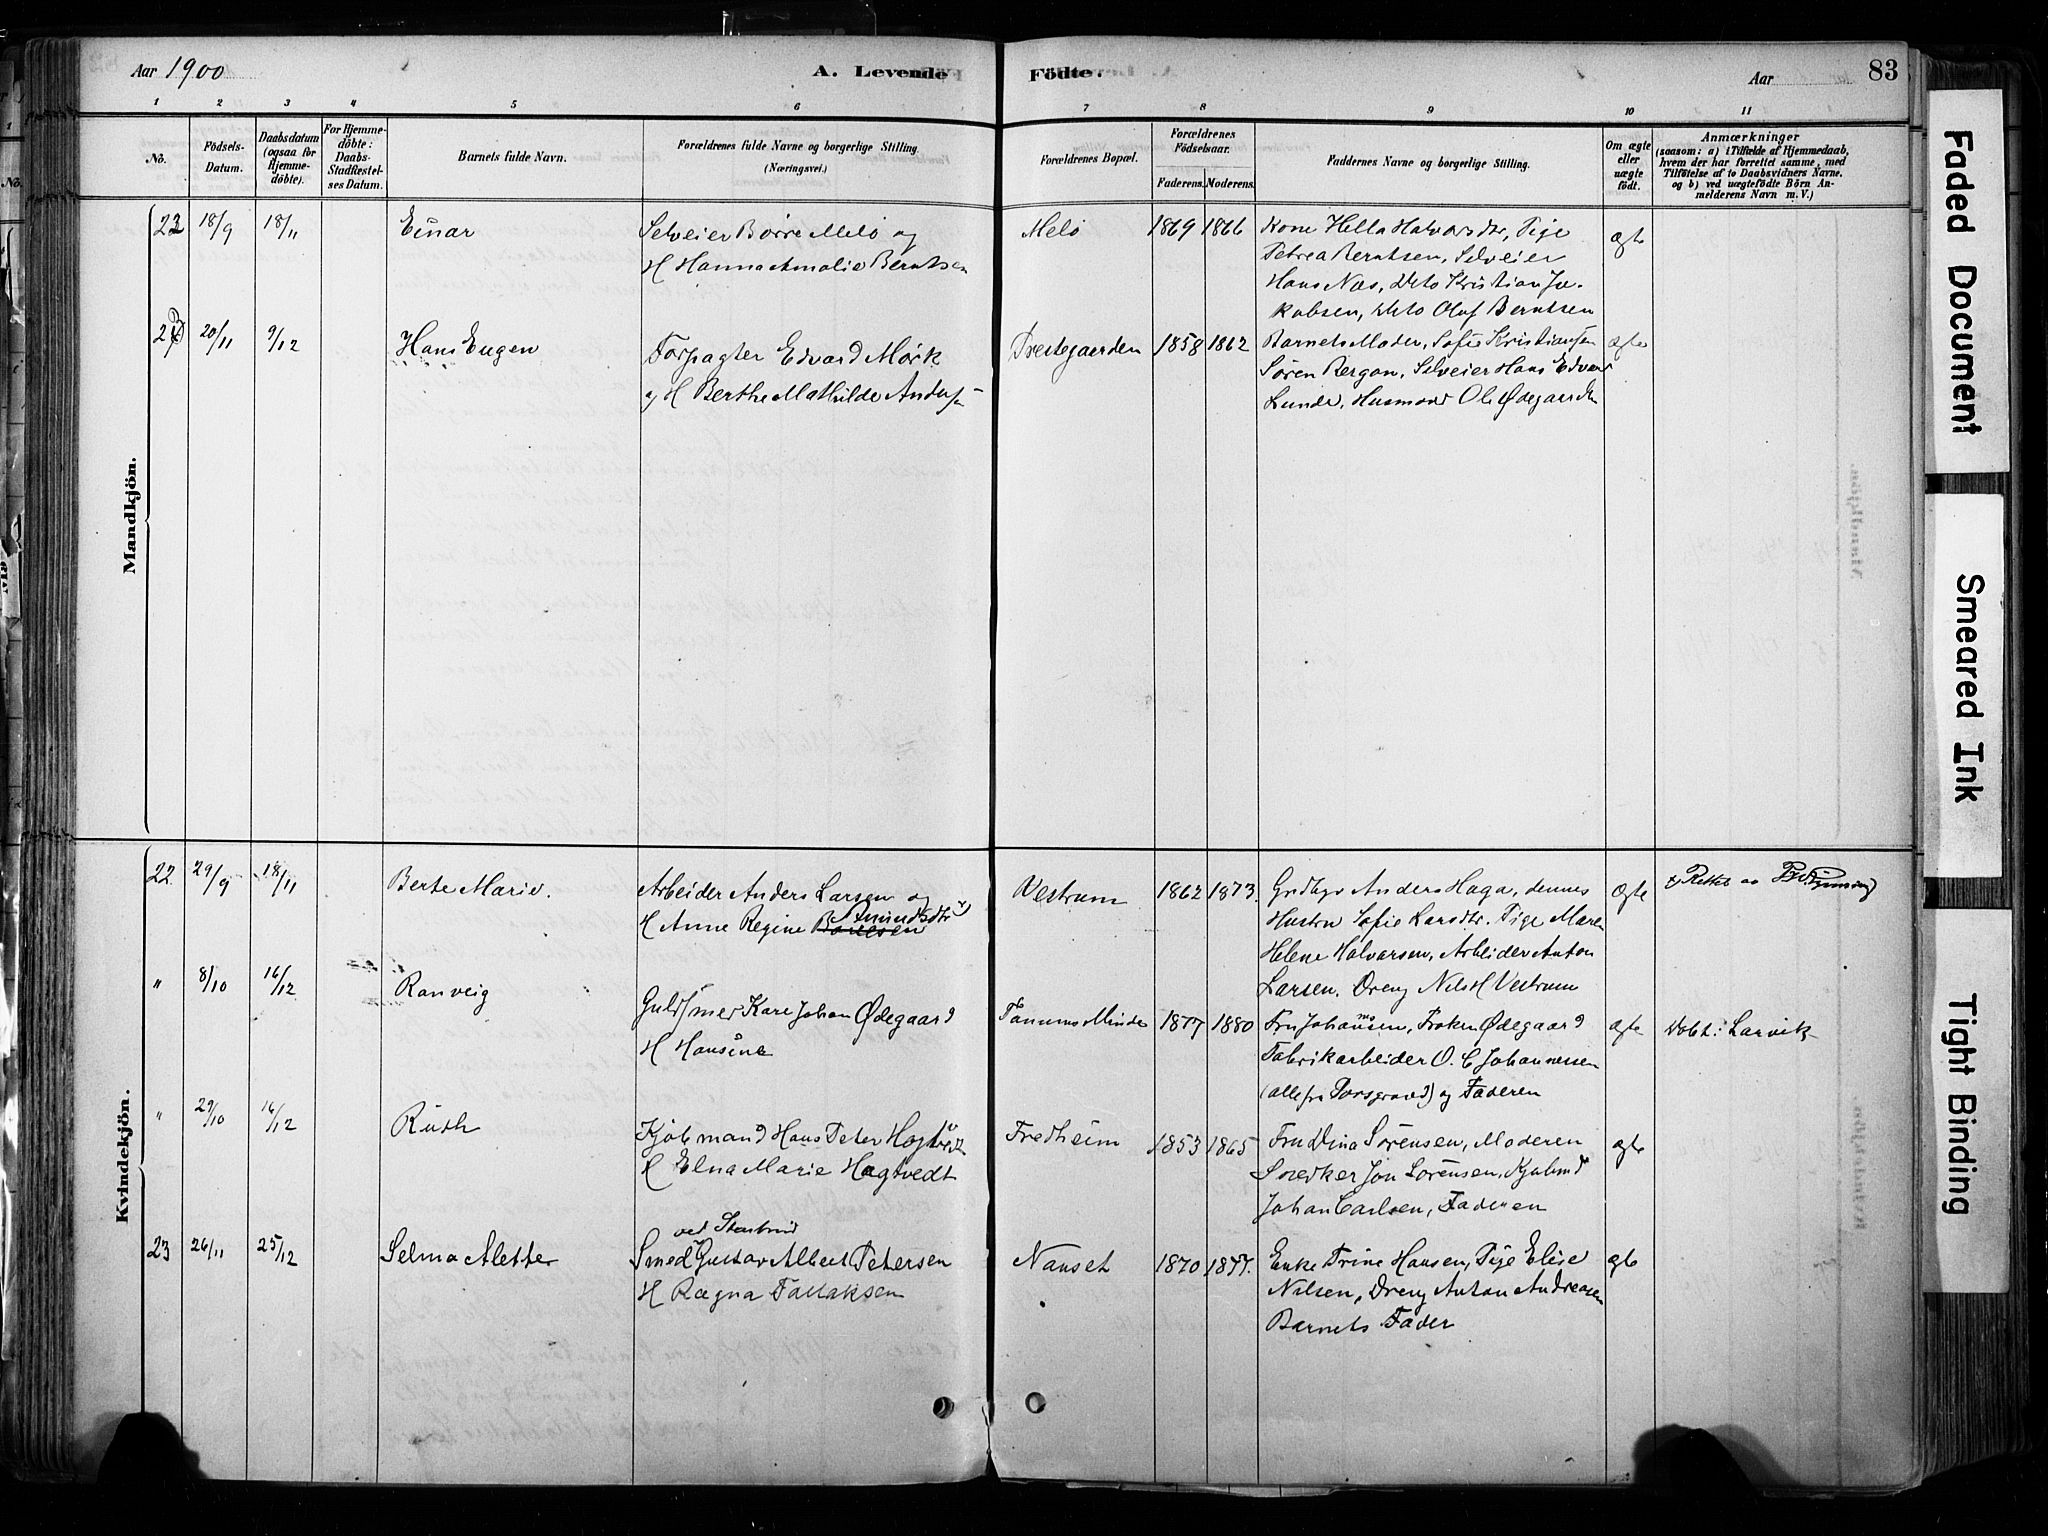 Aar 1900
A. Levende Födte.
Aar
83
1 2 3 4 5 6 7 8 9 10 11
No.
Födsels-Datum.
Daabsdatum (ogsaa for Hjemme-döbte).
For Hjemme-döbte: Daabs-Stadfæstel-ses Datum.
Barnets fulde Navn.
Forældrenes fulde Navne og borgerlige Stilling. (Næringsvei.)
Forældrenes Bopæl.
Forældrenes Födselsaar.
Faderens. Moderens.
Faddernes Navne og borgerlige Stilling.
Om ægte eller uægte födt.
Anmærkninger
(saasom: a) i Tilfælde af Hjemmedaab,
hvem der har forrettet samme, med
Tilföielse af to Daabsvidners Navne.
og b) ved uægtefödte Börn An-
melderens Navn m. V.)
Mandkjön.
22 18/9 18/11 Einar
Selveier Börre Melö og
H Hanna Amalie Berntsen
Melö 1869 1866
Kone Hella Halvorsdtr, Pige
Petrea Berntsen, Selveier
Hans Næs, Dito Kristian Ja-
kobsen, Dito Olaf Berntsen
ægte
20/11 9/12 Hans Eugen
Forpagter Edvard Mörk
og H Berthe Mathilde Andersen
Prestegaarden 1858 1862
Barnets Moder, Sofie Kristiansen
Sören Bergan, Selveier Hans Edvard
Lunde, Husmand Ole Ødegaarden
ægte
Kvindekjön.
22 29/9 18/11 Berte Marie.
Arbeider Anders Larsen og
H Anne Regine Amundsdtr
Vestrum 1862 1873.
Grdbgr Anders Haga, dennes
Hustru Sofie Larsdtr. Pige Maren
Helene Halvorsen, Arbeider Anton
Larsen, Dreng Nils H Vestrum
Ægte
Rettet
" 8/10 16/12 Ranveig
Guldsmed Kare Johan Ødegaard
H Hansine
Fanums Minde 1877 1880
Fru Johannsen, Frøken Ødegaard
Fabrikarbeider O. C Johannessen
(alle fra Porsgrund) og Faderen
ægte
Döbt: Larvik
" 29/10 16/12 Ruth
Kjöbmand Hans Peter Hogtvedt
H Elna Marie Hogtvedt
Fredheim 1853 1865
Fru Dina Sörensen, Moderen
Snedker Jon Sörensen, Kjøbmd
Johan Carlsen, Faderen
ægte
23 26/11 25/12 Selma Alette
ved
Smed Gustav Albert Petersen
H Ragna Tallaksen
Nanset 1870 1877.
Enke Trine Hansen, Pige Elise
Nilsen, Dreng Anton Andreasen
Barnets Fader
ægte
Faded Document
Smeared Ink
Tight Binding